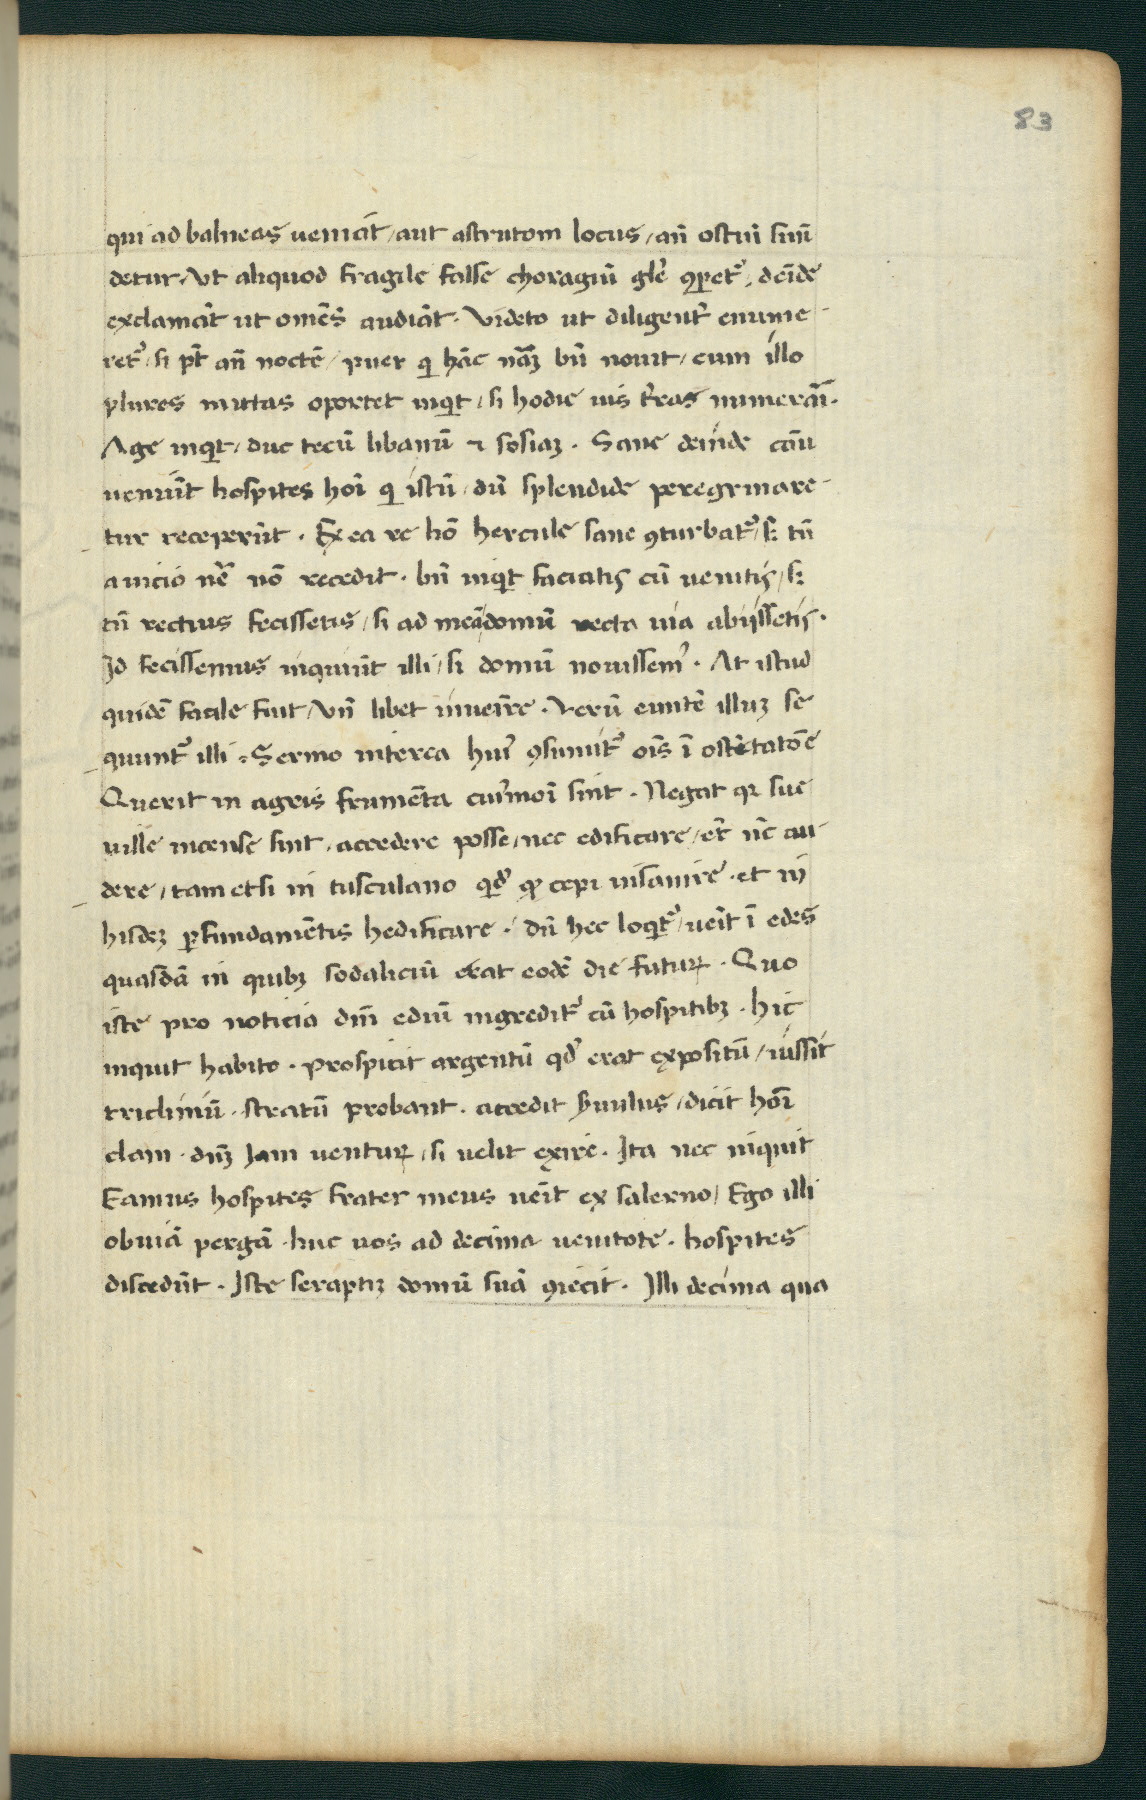 83
qui ad balneas ueniãt / aut astrutom locus / añ ostiũ suũ
detur / Ut aliquod fragile false choragiũ glẽ ꝯpetᷣ / deĩde
exclamãt ut omẽs audiãt · Videto ut diligent̃ enume-
retᷣ / si pt̃ añ noctẽ / puer qi hãc nãꝫ bñ nouit / cum illo
plures mittas oportet inqit / si hodie uis t̃ras numerãĩ ·
Age inqit / duc tecũ libanũ ⁊ sosiaꝫ · Sane deinde cõu
ueniũt hospites hoĩ qi istũ / dũ splendide peregrinare-
tur receperũt · Ex ea re hõ hercule sane ꝯturbatᷣ / sꝫ tñ
a uicio nẽ nõ recedit · bñ inqit faciatis cũ uenitis / sꝫ
tñ rectius fecissetis / si ad meã domũ recta uia abijssetis ·
Id fecissemus inquiũt illi / si domũ nouissem᾽ · At istud
quidẽ facile fuit / Vñ libet inueĩre · Verũ euntẽ illuꝫ se
quuntᷣ illi · Sermo interea hui᾽ ꝯsumit̃ᷣ oĩs ĩ ostẽtatõe
Querit in agris frumẽta cui᾽moĩ sint · Negat qꝛ sue
uille incense sint / accedere posse / nec edificare / et̃ nc̃ au-
dere / tametsi in tusculano qd̃ ꝙ cepi insanire · et in
hisdeꝫ ꝑ fundamẽtis hedificare · dũ hec loqitᷣ / ueĩt ĩ edes
quasdã in quibꝫ sodaliciũ erat eodẽ die futuꝝ · Quo
iste pro noticia dñi ediũ ingreditᷣ cũ hospitibꝫ · hic
inquit habito · prospicit argentũ qd̃ erat expositũ / uissit
tricliniũ · stratũ probant · accedit s̃uulus / dicit hoĩ
clam · dñꝫ Iam uentuꝝ / si uelit exire · Ita nec inquit
Eamus hospites frater meus ueĩt ex salerno / Ego illi
obuiã pergã · huc uos ad decima uenitote · hospites
discedũt · Iste seraptiꝫ domũ suã ꝯiecit · Illi decima qua